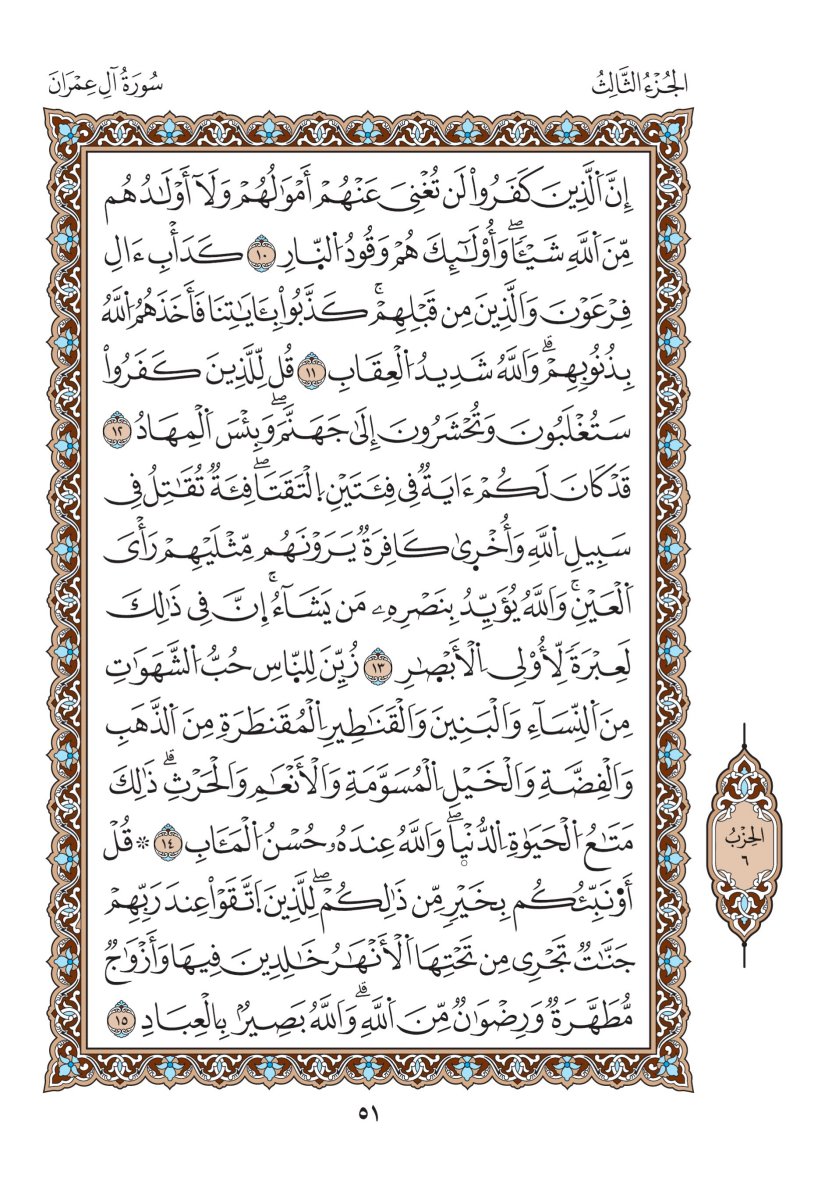 الجُزْءُ الثَّالِثُ
سُورَةُ آلِ عِمْرَانَ
إِنَّ اَ۬لَّذِينَ كَفَرُواْ لَن تُغْنِيَ عَنْهُمْ أَمْوَٰلُهُمْ وَلَآ أَوْلَٰدُهُم
مِّنَ اَ۬للَّهِ شَيْـًٔاۖ وَأُوْلَٰٓئِكَ هُمْ وَقُودُ اُ۬لنّ۪ارِ ١٠ كَدَأْبِ ءَالِ
فِرْعَوْنَ وَالَّذِينَ مِن قَبْلِهِمْۚ كَذَّبُواْ بِـَٔايَٰتِنَا فَأَخَذَهُمُ اُ۬للَّهُ
بِذُنُوبِهِمْۗ وَاللَّهُ شَدِيدُ اُ۬لْعِقَابِ ١١ قُل لِّلَّذِينَ كَفَرُواْ
سَتُغْلَبُونَ وَتُحْشَرُونَ إِلَىٰ جَهَنَّمَۖ وَبِئْسَ اَ۬لْمِهَادُ ١٢
قَدْ كَانَ لَكُمْ ءَايَةٌ فِي فِئَتَيْنِ اِ۪لْتَقَتَاۖ فِئَةٌ تُقَٰتِلُ فِي
سَبِيلِ اِ۬للَّهِ وَأُخْر۪يٰ كَافِرَةٌ يَرَوْنَهُم مِّثْلَيْهِمْ رَأْيَ
اَ۬لْعَيْنِۚ وَاللَّهُ يُؤَيِّدُ بِنَصْرِهِۦ مَن يَشَآءُۚ إِنَّ فِي ذَٰلِكَ
لَعِبْرَةً لِّأُوْلِي اِ۬لْأَبْصٰ۪رِ ١٣ زُيِّنَ لِلنّ۪اسِ حُبُّ اُ۬لشَّهَوَٰتِ
مِنَ اَ۬لنِّسَآءِ وَالْبَنِينَ وَالْقَنَٰطِيرِ اِ۬لْمُقَنطَرَةِ مِنَ اَ۬لذَّهَبِ
وَالْفِضَّةِ وَالْخَيْلِ اِ۬لْمُسَوَّمَةِ وَالْأَنْعَٰمِ وَالْحَرْثِۗ ذَٰلِكَ
مَتَٰعُ اُ۬لْحَيَوٰةِ اِ۬لدُّنْي۪اۖ وَاللَّهُ عِندَهُۥ حُسْنُ اُ۬لْمَـَٔابِ ١٤ ۞ قُلْ
أَوُ۬نَبِّئُكُم بِخَيْرٍ مِّن ذَٰلِكُمْۖ لِلَّذِينَ اَ۪تَّقَوْاْ عِندَ رَبِّهِمْ
جَنَّٰتٌ تَجْرِي مِن تَحْتِهَا اَ۬لْأَنْهَٰرُ خَٰلِدِينَ فِيهَا وَأَزْوَٰجٌ
مُّطَهَّرَةٌ وَرِضْوَٰنٌ مِّنَ اَ۬للَّهِۗ وَاللَّهُ بَصِيرٌ بِالْعِبَادِ ١٥
الحِزْبُ
٦
٥١